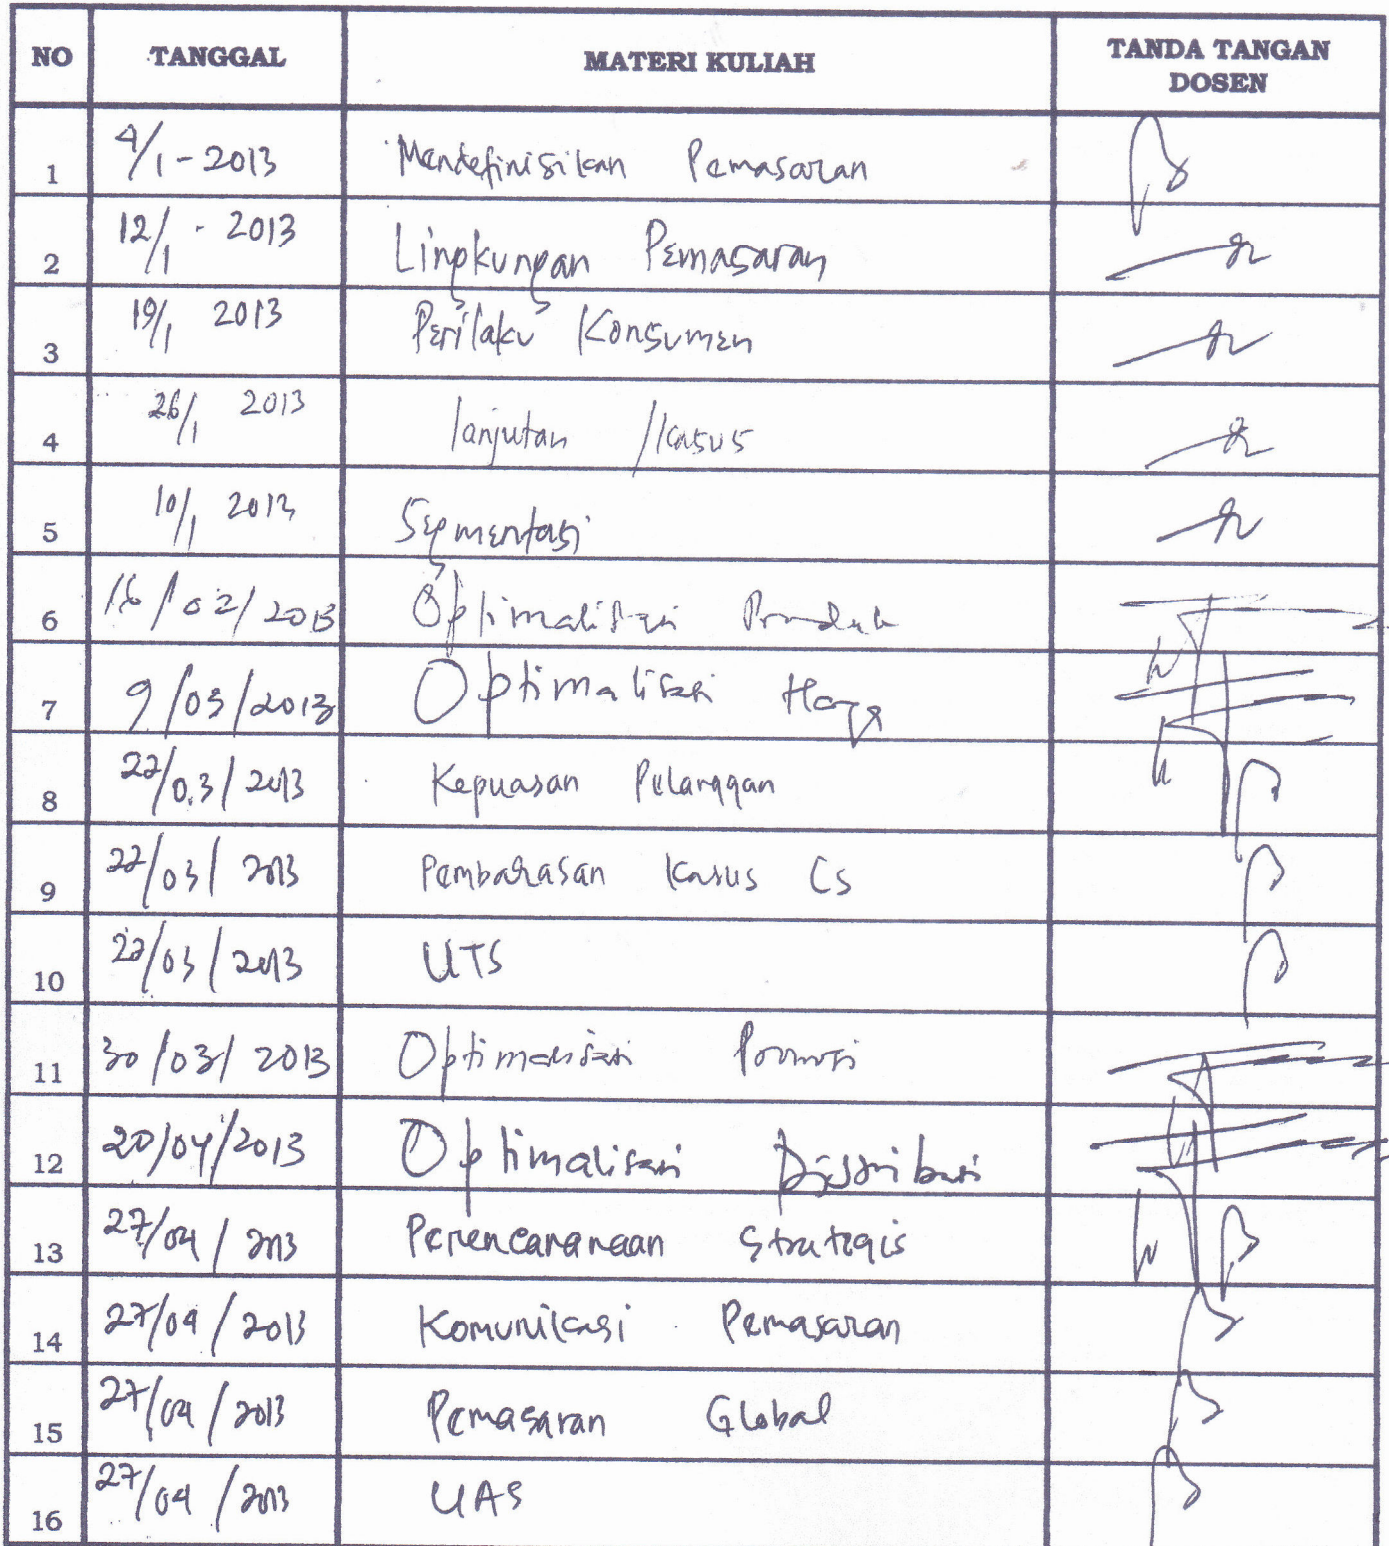 NO TANGGAL MATERI KULIAH TANDA TANGAN DOSEN
1 4/1-2013 Mendefinisikan Pemasaran
2 12/1 - 2013 Lingkungan Pemasaran
3 19/1 2013 Perilaku Konsumen
4 26/1 2013 lanjutan /kasus
5 10/1 2013 Segmentasi
6 16/02/2013 Optimalisasi Produk
7 9/03/2013 Optimalisasi Harga
8 22/03/2013 Kepuasan Pelanggan
9 22/03/2013 Pembahasan Kasus CS
10 22/03/2013 UTS
11 30/03/2013 Optimalisasi Promosi
12 20/04/2013 Optimalisasi Distribusi
13 27/04/2013 Perencanaan Strategis
14 27/04/2013 Komunikasi Pemasaran
15 27/04/2013 Pemasaran Global
16 27/04/2013 UAS